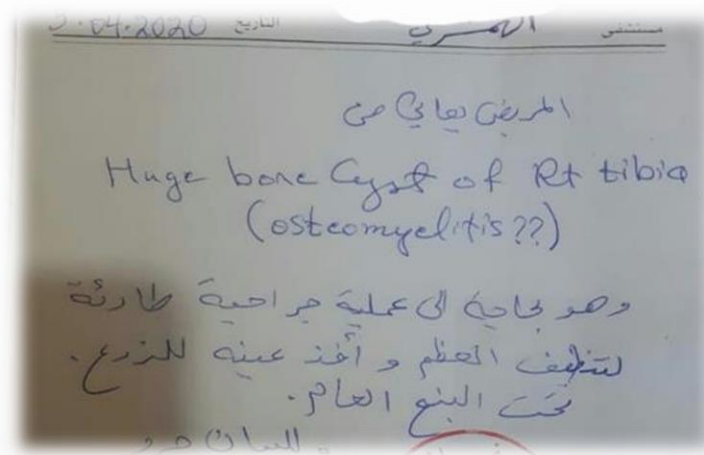 مستشفى التاريخ 04.2020
المريض يعاني من
Huge bone Cyst of Rt tibia
(osteomyelitis??)
وهو بحاجة الى عملية جراحية طارئة
لتنظيف العظم و أخذ عينه للزرع.
تحت البنج العام.